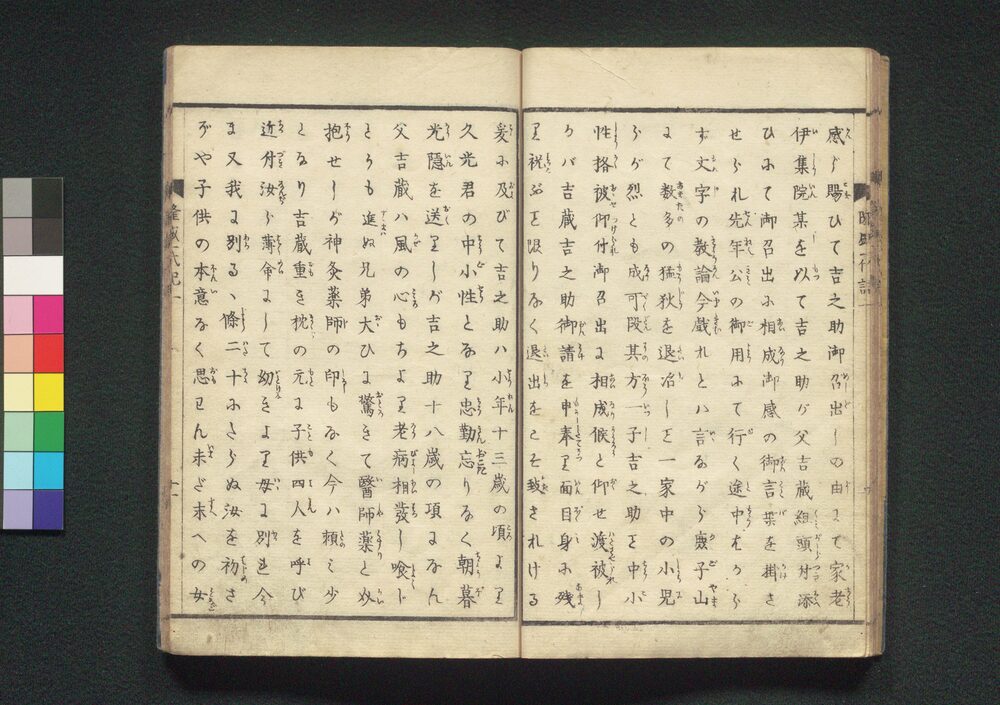 感ジ賜ひて吉之助御召出しの由にて家老
伊集院某を以て吉之助が父吉蔵組頭付添
ひにて御召出に相成御感の御言葉を掛さ
せられ先年公の御用にて行く途中をから
す文字の教論今戯れとハ言ながら農子山
にて数多の猛狄を退治しを一家中の小児
らが烈とも成可段其方一子吉之助を中小
性格被仰付御召出に相成候と仰せ渡被し
かバ吉蔵吉之助御請を申奉り面目身に残
り祝ぶを限りなく退出をこそ致されける
爰に及びて吉之助ハ小年十三歳の頃より
久光君の中小性となり忠勤忘りなく朝暮
光隠を送りしが吉之助十八歳の項になん
父吉蔵ハ風の心もちより老病相發し喰ド
とりも進ぬ兄弟大ひに驚きて醫師薬と
抱せしが神灸薬師の印もなく今ハ頼ミ少
となり吉蔵重き枕の元に子供四人を呼び
近付汝ら薄命にして幼きより母に別き今
ま又我に別るゝ條二十にたらぬ汝を初さ
ぞや子供の本意なく思わん未ざ末への女